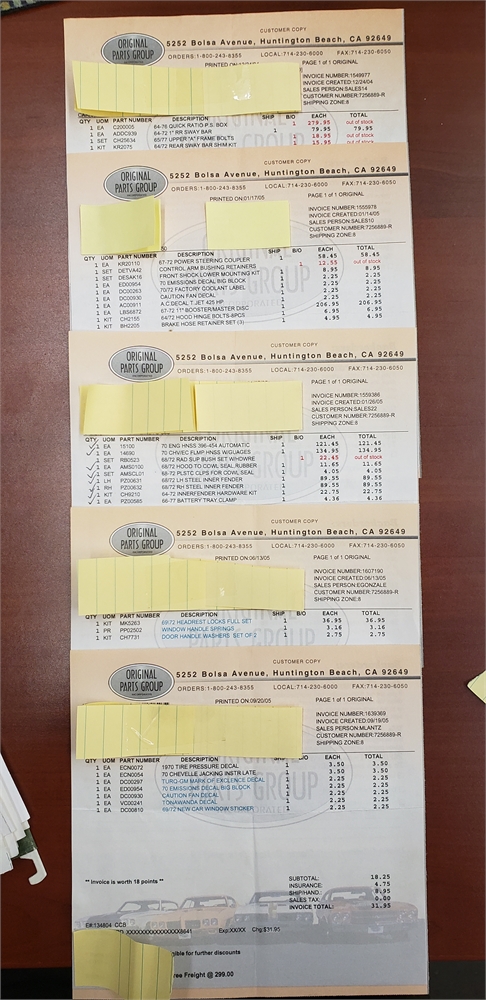 CUSTOMER COPY
ORIGINAL PARTS GROUP
5252 Bolsa Avenue, Huntington Beach, CA 92649
ORDERS:1-800-243-8355 LOCAL:714-230-6000 FAX:714-230-6050
PAGE 1 of 1 ORIGINAL
INVOICE NUMBER:1549977
INVOICE CREATED:12/24/04
SALES PERSON:SALES14
CUSTOMER NUMBER:7256889-R
SHIPPING ZONE:8
QTY UOM PART NUMBER DESCRIPTION SHIP B/O EACH TOTAL
1 EA C200005 64-76 QUICK RATIO P.S. BOX 1 279.95 out of stock
1 EA ADDC939 64-72 1" RR SWAY BAR 1 79.95 79.95
1 SET CH25634 65/77 UPPER "A" FRAME BOLTS 1 18.95 out of stock
1 KIT KR2075 64/72 REAR SWAY BAR SHIM KIT 1 15.95 out of stock
CUSTOMER COPY
ORIGINAL PARTS GROUP
5252 Bolsa Avenue, Huntington Beach, CA 92649
ORDERS:1-800-243-8355 LOCAL:714-230-6000 FAX:714-230-6050
PRINTED ON:01/17/05 PAGE 1 of 1 ORIGINAL
INVOICE NUMBER:1555978
INVOICE CREATED:01/14/05
SALES PERSON:SALES10
CUSTOMER NUMBER:7256889-R
SHIPPING ZONE:8
QTY UOM PART NUMBER DESCRIPTION SHIP B/O EACH TOTAL
1 EA KR20110 67-72 POWER STEERING COUPLER 1 58.45 58.45
1 SET DETVA42 CONTROL ARM BUSHING RETAINERS 1 12.55 out of stock
1 SET DESAK16 FRONT SHOCK LOWER MOUNTING KIT 1 8.95 8.95
1 EA ED00954 70 EMISSIONS DECAL BIG BLOCK 1 2.25 2.25
1 EA DC00263 70/72 FACTORY COOLANT LABEL 1 2.25 2.25
1 EA DC00930 CAUTION FAN DECAL 1 2.25 2.25
1 EA AC00911 A.C.DECAL T.JET 425 HP 1 2.25 2.25
1 EA LBS6872 67-72 11" BOOSTER/MASTER DISC 1 206.95 206.95
1 KIT CH2155 64/72 HOOD HINGE BOLTS-8PCS 1 6.95 6.95
1 KIT BH2205 BRAKE HOSE RETAINER SET (3) 1 4.95 4.95
CUSTOMER COPY
ORIGINAL PARTS GROUP
5252 Bolsa Avenue, Huntington Beach, CA 92649
ORDERS:1-800-243-8355 LOCAL:714-230-6000 FAX:714-230-6050
PAGE 1 of 1 ORIGINAL
INVOICE NUMBER:1559386
INVOICE CREATED:01/26/05
SALES PERSON:SALES22
CUSTOMER NUMBER:7256889-R
SHIPPING ZONE:8
QTY UOM PART NUMBER DESCRIPTION SHIP B/O EACH TOTAL
1 EA 15100 70 ENG HNSS 396-454 AUTOMATIC 1 121.45 121.45
1 EA 14690 70 CHV/EC FLMP HNSS W/GUAGES 1 134.95 134.95
1 SET RB0523 68/72 RAD SUP BUSH SET W/HDWRE 1 22.45 out of stock
1 EA AMS0100 68/72 HOOD TO COWL SEAL,RUBBER 1 11.65 11.65
1 SET AMSCL01 68/72 PLSTC CLPS FOR COWL SEAL 1 4.05 4.05
1 LH PZ00631 68/72 LH STEEL INNER FENDER 1 89.55 89.55
1 RH PZ00632 68/72 RH STEEL INNER FENDER 1 89.55 89.55
1 KIT CH9210 64-72 INNERFENDER HARDWARE KIT 1 22.75 22.75
1 EA PZ00585 66-77 BATTERY TRAY CLAMP 1 4.36 4.36
CUSTOMER COPY
ORIGINAL PARTS GROUP
5252 Bolsa Avenue, Huntington Beach, CA 92649
ORDERS:1-800-243-8355 LOCAL:714-230-6000 FAX:714-230-6050
PRINTED ON:06/13/05 PAGE 1 of 1 ORIGINAL
INVOICE NUMBER:1607190
INVOICE CREATED:06/13/05
SALES PERSON:EGONZALE
CUSTOMER NUMBER:7256889-R
SHIPPING ZONE:8
QTY UOM PART NUMBER DESCRIPTION SHIP B/O EACH TOTAL
1 KIT MK5263 69/72 HEADREST LOCKS FULL SET 1 36.95 36.95
1 PR PP02502 WINDOW HANDLE SPRINGS 1 3.16 3.16
1 KIT CH7731 DOOR HANDLE WASHERS SET OF 2 1 2.75 2.75
CUSTOMER COPY
ORIGINAL PARTS GROUP
5252 Bolsa Avenue, Huntington Beach, CA 92649
ORDERS:1-800-243-8355 LOCAL:714-230-6000 FAX:714-230-6050
PRINTED ON:09/20/05 PAGE 1 of 1 ORIGINAL
INVOICE NUMBER:1639369
INVOICE CREATED:09/19/05
SALES PERSON:MLANTZ
CUSTOMER NUMBER:7256889-R
SHIPPING ZONE:8
QTY UOM PART NUMBER DESCRIPTION SHIP B/O EACH TOTAL
1 EA ECN0072 1970 TIRE PRESSURE DECAL 1 3.50 3.50
1 EA ECN0054 70 CHEVELLE JACKING INSTR LATE 1 3.50 3.50
1 EA DC00297 TURQ GM MARK OF EXCLENCE DECAL 1 2.25 2.25
1 EA ED00954 70 EMISSIONS DECAL BIG BLOCK 1 2.25 2.25
1 EA DC00930 CAUTION FAN DECAL 1 2.25 2.25
1 EA VC00241 TONAWANDA DECAL 1 2.25 2.25
1 EA DC00810 69/72 NEW CAR WINDOW STICKER 1 2.25 2.25
** Invoice is worth 18 points **
SUBTOTAL: 18.25
INSURANCE: 4.75
SHIP/HAND: 8.95
SALES TAX: 0.00
INVOICE TOTAL: 31.95
E#:134804 CCB
Exp:XX/XX Chg:$31.95
gible for further discounts
ree Freight @ 299.00